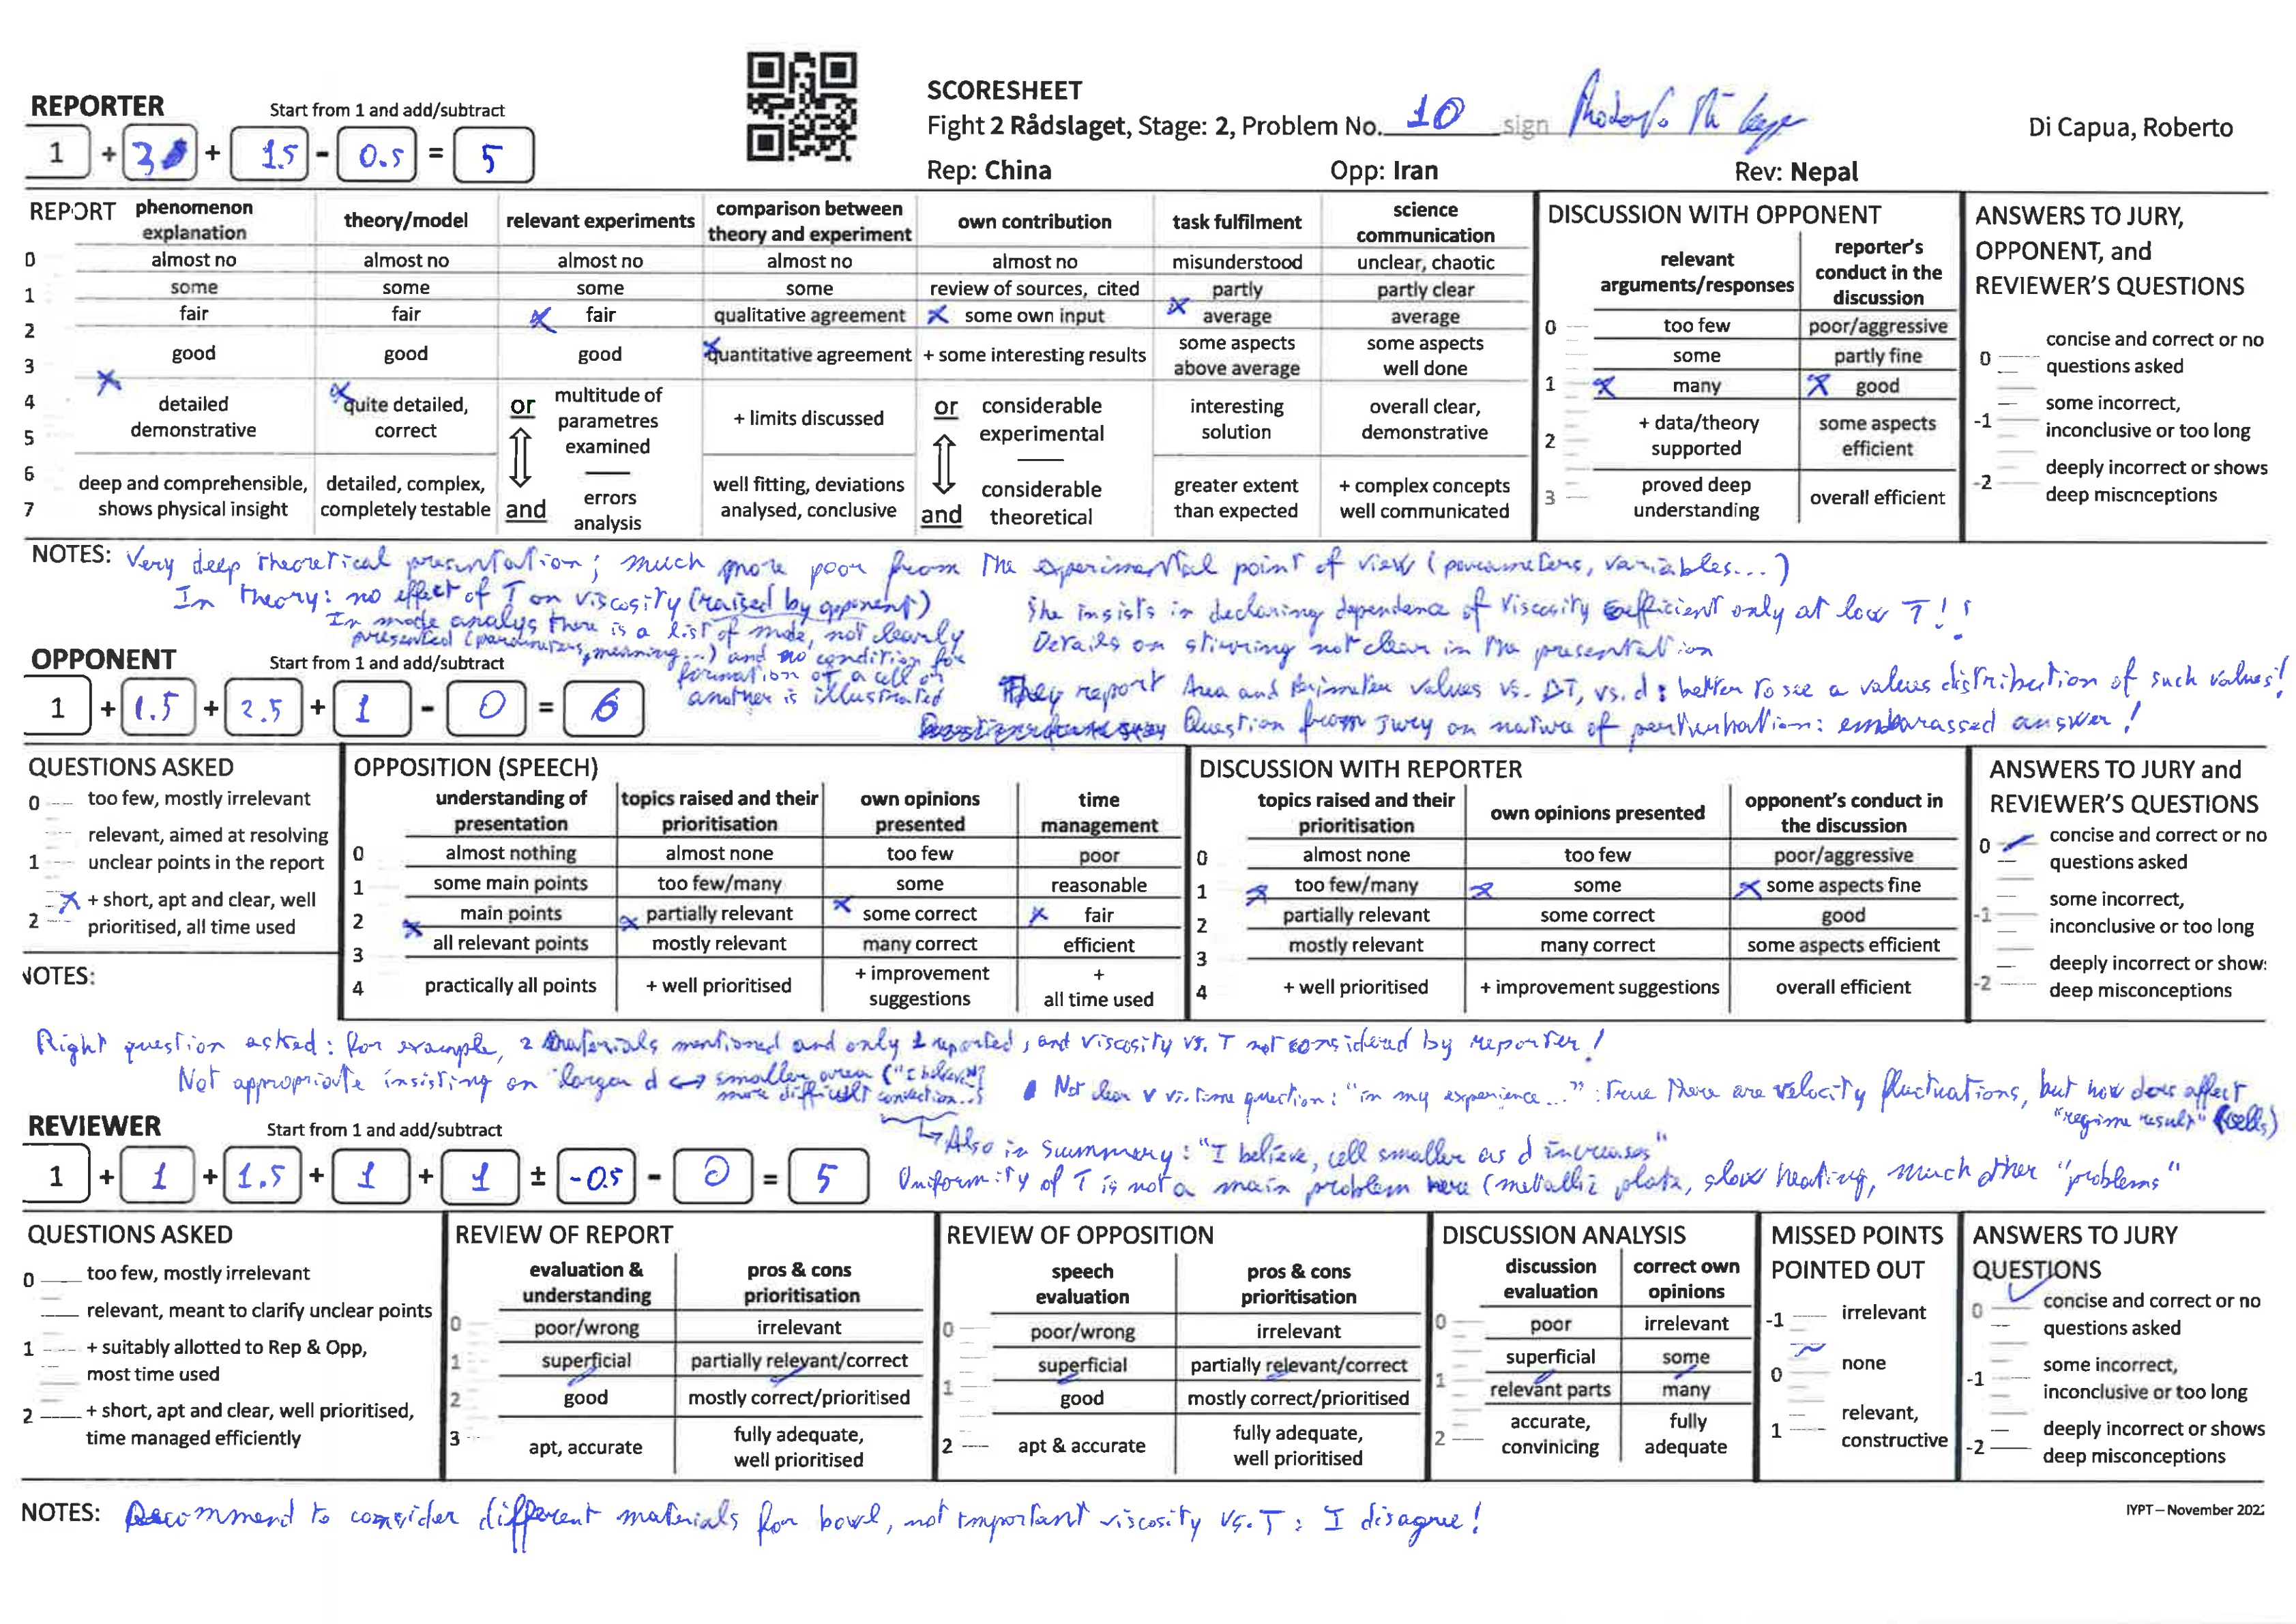 REPORTER Start from 1 and add/subtract
1 + 3 + 1.5 - 0.5 = 5
SCORESHEET
Fight 2 Rådslaget, Stage: 2, Problem No. 10 sign
Di Capua, Roberto
Rep: China Opp: Iran Rev: Nepal
REPORT
phenomenon explanation theory/model relevant experiments comparison between theory and experiment own contribution task fulfilment science communication
0 almost no almost no almost no almost no almost no misunderstood unclear, chaotic
1 some some some some review of sources, cited partly partly clear
fair fair fair qualitative agreement some own input average average
2
3 good good good quantitative agreement + some interesting results some aspects above average some aspects well done
4 detailed demonstrative quite detailed, correct or multitude of parametres examined + limits discussed or considerable experimental interesting solution overall clear, demonstrative
5
6 deep and comprehensible, shows physical insight detailed, complex, completely testable and errors analysis well fitting, deviations analysed, conclusive and considerable theoretical greater extent than expected + complex concepts well communicated
7
DISCUSSION WITH OPPONENT
relevant arguments/responses reporter's conduct in the discussion
0 too few poor/aggressive
some partly fine
1 many good
2 + data/theory supported some aspects efficient
3 proved deep understanding overall efficient
ANSWERS TO JURY, OPPONENT, and REVIEWER'S QUESTIONS
0 concise and correct or no questions asked
-1 some incorrect, inconclusive or too long
-2 deeply incorrect or shows deep miscnceptions
NOTES: Very deep theoretical presentation; much more poor from the experimental point of view (parameters, variables...)
In theory: no effect of T on viscosity (raised by opponent)
In mode analys there is a list of mode, not clearly
presented (parameters, meaning...) and no condition for
formation of a cell or
another is illustrated
She insists in declaring dependence of viscosity coefficient only at low T!!
Details on stirring not clear in the presentation
They report Area and Perimeter values vs. ΔT, vs. d: better to see a values distribution of such values!
Question from jury on nature of perturbation: embarassed answer!
OPPONENT Start from 1 and add/subtract
1 + 1.5 + 2.5 + 1 - 0 = 6
QUESTIONS ASKED
0 too few, mostly irrelevant
relevant, aimed at resolving
1 unclear points in the report
+ short, apt and clear, well
2 prioritised, all time used
NOTES:
OPPOSITION (SPEECH)
understanding of presentation topics raised and their prioritisation own opinions presented time management
0 almost nothing almost none too few poor
1 some main points too few/many some reasonable
2 main points partially relevant some correct fair
3 all relevant points mostly relevant many correct efficient
4 practically all points + well prioritised + improvement suggestions + all time used
DISCUSSION WITH REPORTER
topics raised and their prioritisation own opinions presented opponent's conduct in the discussion
0 almost none too few poor/aggressive
1 too few/many some some aspects fine
2 partially relevant some correct good
3 mostly relevant many correct some aspects efficient
4 + well prioritised + improvement suggestions overall efficient
ANSWERS TO JURY and REVIEWER'S QUESTIONS
0 concise and correct or no questions asked
-1 some incorrect, inconclusive or too long
-2 deeply incorrect or show: deep misconceptions
Right question asked: for example, 2 materials mentioned and only 1 reported, and viscosity vs. T not considered by reporter!
Not appropriate insisting on larger d ↔ smaller area ("I believe"
more difficult convection...)
Not clear v vs. time question: "in my experience..." : True there are velocity fluctuations, but how does affect
"regime result" (cells)
Also in summary: "I believe, cell smaller as d increases"
Uniformity of T is not a main problem here (metallic plate, slow heating, much other "problems"
REVIEWER Start from 1 and add/subtract
1 + 1 + 1.5 + 1 + 1 ± -0.5 - 0 = 5
QUESTIONS ASKED
0 too few, mostly irrelevant
relevant, meant to clarify unclear points
1 + suitably allotted to Rep & Opp,
most time used
2 + short, apt and clear, well prioritised,
time managed efficiently
REVIEW OF REPORT
evaluation & understanding pros & cons prioritisation
0 poor/wrong irrelevant
1 superficial partially relevant/correct
2 good mostly correct/prioritised
3 apt, accurate fully adequate, well prioritised
REVIEW OF OPPOSITION
speech evaluation pros & cons prioritisation
0 poor/wrong irrelevant
superficial partially relevant/correct
1 good mostly correct/prioritised
2 apt & accurate fully adequate, well prioritised
DISCUSSION ANALYSIS
discussion evaluation correct own opinions
0 poor irrelevant
superficial some
1 relevant parts many
2 accurate, convinicing fully adequate
MISSED POINTS POINTED OUT
-1 irrelevant
0 none
1 relevant, constructive
ANSWERS TO JURY QUESTIONS
0 concise and correct or no questions asked
-1 some incorrect, inconclusive or too long
-2 deeply incorrect or shows deep misconceptions
NOTES: Recommend to consider different materials for bowl, not important viscosity vs. T: I disagree!
IYPT – November 202